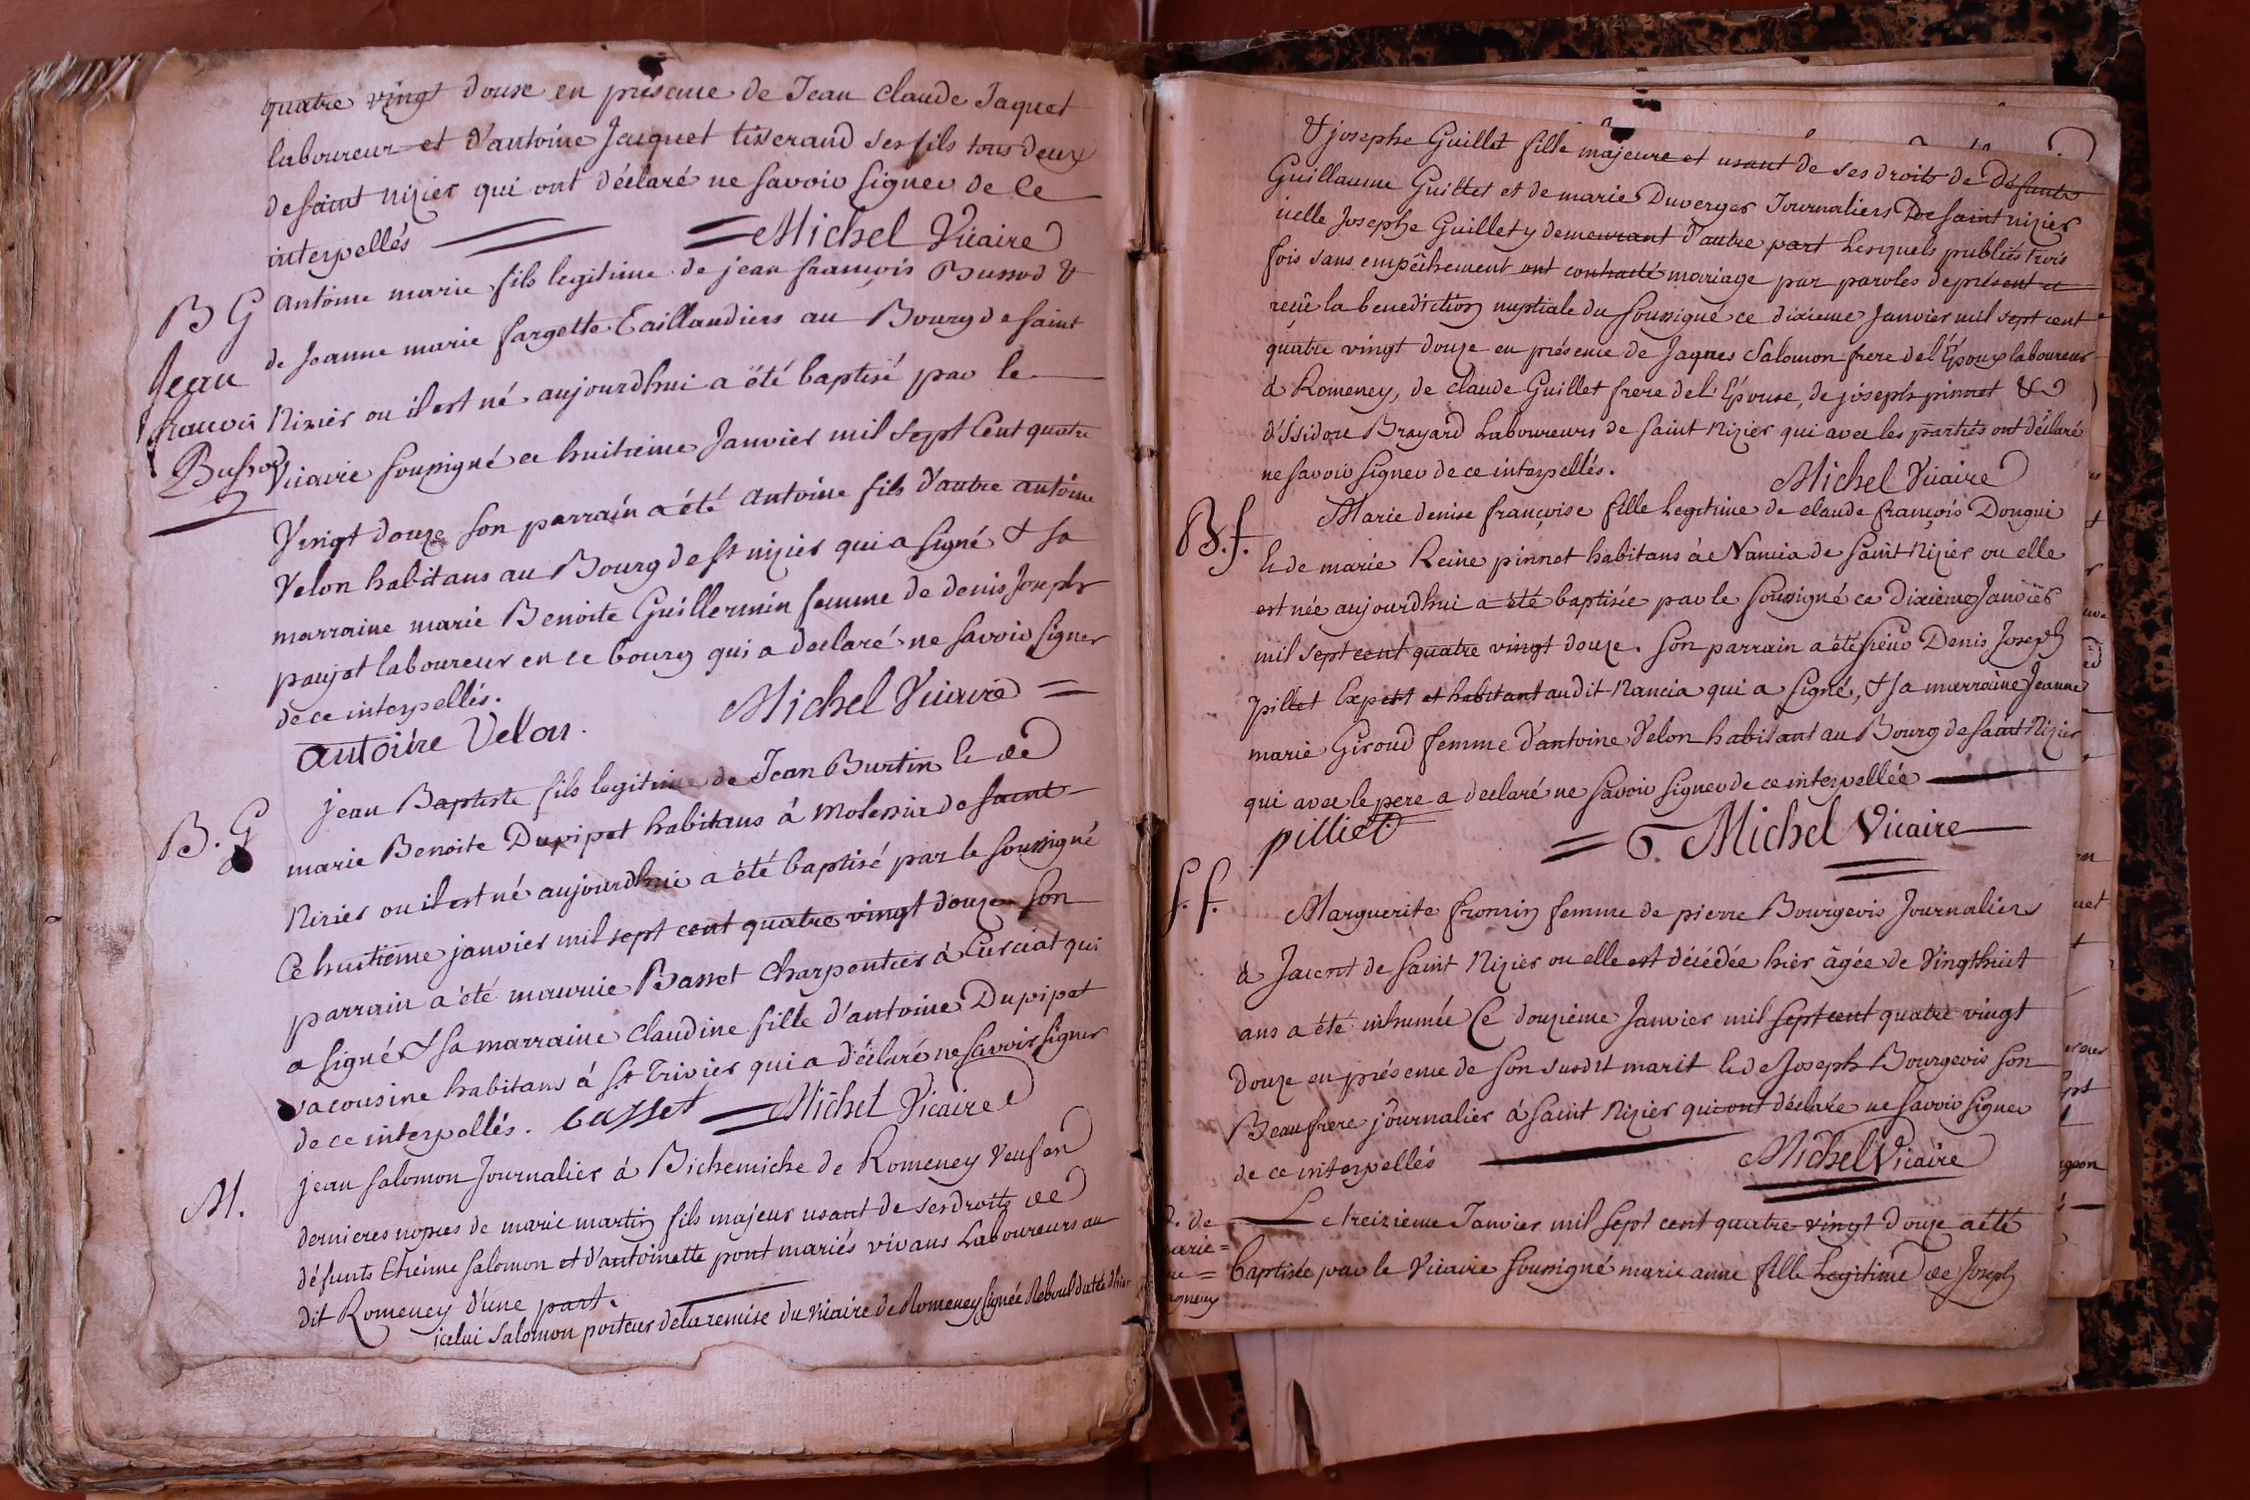 quatre vingt douse en présence de Jean claude Jaquet
laboureur et d'antoine Jaquet tisserand ses fils tous deux
de saint nizier qui ont déclaré ne savoir signer de ce
interpellés
Michel Vicaire
B G
antoine marie fils legitime de jean françois Bussod &
de Jeanne marie fargette Taillandiers au Bourg de saint
Jean
françois
Nizier ou il est né aujourdhui a été baptisé par le
Bussod
Vicaire soussigné ce huitieme Janvier mil sept Cent quatre
Vingt douze son parrain a été antoine fils d'autre antoine
Velon habitans au Bourg de st nizier qui a signé & sa
marraine marie Benoite Guillermin femme de denis Joseph
paujat laboureur en ce bourg qui a declaré ne savoir signer
de ce interpellés.
Michel Vicaire
antoine Velon.
B. G
jean Baptiste fils legitime de Jean Burtin & de
marie Benoite Dupipet habitans à molessia de saint
Nizier ou il est né aujourdhui a été baptisé par le soussigné
Ce huitieme janvier mil sept cent quatre vingt douze son
parrain a été maurice Basset Charpentier à Curciat qui
a signé & sa marraine claudine fille d'antoine Dupipet
sa cousine habitans à St Trivier qui a déclaré ne savoir signer
de ce interpellés. basset Michel Vicaire
M.
jean salomon Journalier à Bichemiche de Romeney veuf en
dernieres nopces de marie martin fils majeur usant de ses droits de
défunts Etienne salomon et d'antoinette pont mariés vivans Laboureurs au
dit Romeney d'une part.
icelui salomon porteur de la remise du vicaire de Romeney signée Reboul datée d'hier
& josephe Guillet fille majeure et usant de ses droits de défunts
Guillaume Guillet et de marie Duverger Journaliers De saint nizier
icelle Josephe Guillet y demeurant d'autre part Lesquels publiés trois
fois sans empêchement ont contracté mariage par paroles de présent et
reçu la benediction nuptiale du soussigné ce dixieme Janvier mil sept cent
quatre vingt douze en présence de Jaques Salomon frere de l'Epoux laboureur
à Romeney, de claude Guillet frere de l'Epouse, de joseph pinnet &
d'Isidore Brayard Laboureurs de saint Nizier qui avec les parties ont déclaré
ne savoir signer de ce interpellés.
Michel Vicaire
B. f.
Marie denise françoise fille Legitime de claude françois Dongui
& de marie Reine pinnet habitans à Nancia de saint Nizier ou elle
est née aujourdhui a été baptisée par le soussigné ce Dixieme Janvier
mil sept cent quatre vingt douze. Son parrain a été sieur Denis Joseph
pillet Expert et habitant audit Nancia qui a signé, & sa marraine Jeanne
marie Giroud femme d'antoine Velon habitant au Bourg de saint Nizier
qui avec le pere a declaré ne savoir signer de ce interpellée
pilliet
Michel Vicaire
S. f.
Marguerite fromin femme de pierre Bourgeois Journalier
à Jacent de saint Nizier ou elle est décédée hier âgée de Vingt huit
ans a été inhumée Ce douzième Janvier mil sept cent quatre vingt
douze en présence de son susdit marit & de Joseph Bourgeois son
Beaufrere journalier à saint Nizier qui ont déclaré ne savoir signer
de ce interpellés
Michel Vicaire
Le treizieme Janvier mil sept cent quatre vingt douze a été
Baptisée par le Vicaire soussigné marie anne fille Legitime de Joseph